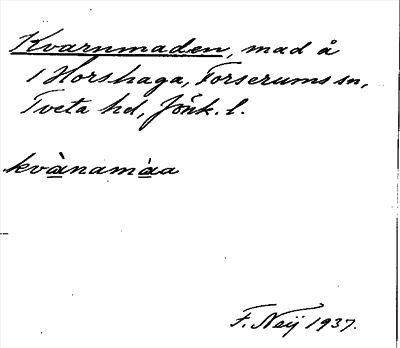 Kvarnmaden, mad å
1 Horshaga, Forserums sn,
Tveta hd, Jönk. l.
kvànamàa
F. Neij 1937.